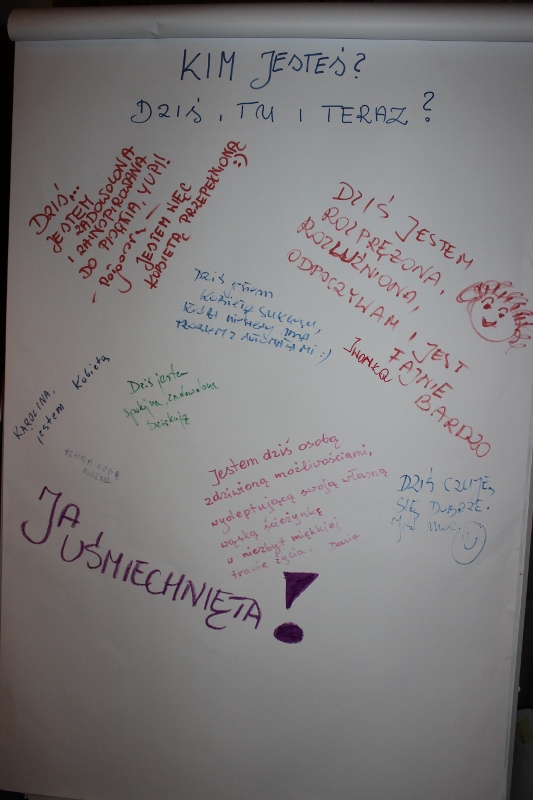 KIM JESTEŚ?
DZIŚ, TU I TERAZ?
DZIŚ...
JESTEM
ZADOWOLONA
I ZAINSPIROWANA
DO PISANIA, YUPI!
JESTEM WIĘC
KOBIETĄ PRZEPEŁNIONĄ
:)
DZIŚ JESTEM
ROZPRĘŻONA,
ROZLUŹNIONA,
ODPOCZYWAM I JEST
FAJNIE
BARDZO
IWONKA
Dziś jestem
Kobietą sukcesu,
która niewiele ma
problem z :)
KAROLINA,
jestem Kobietą
Dziś jestem
spokojna, zadowolona
Dziękuję
JESTEM
Jestem dziś osobą
zdziwioną możliwościami,
wydeptującą swoją własną
wąską ścieżynkę
w niezbyt miękkiej
trawie życia. Daria
DZIŚ CZUJĘ
SIĘ DOBRZE.
JA
UŚMIECHNIĘTA!